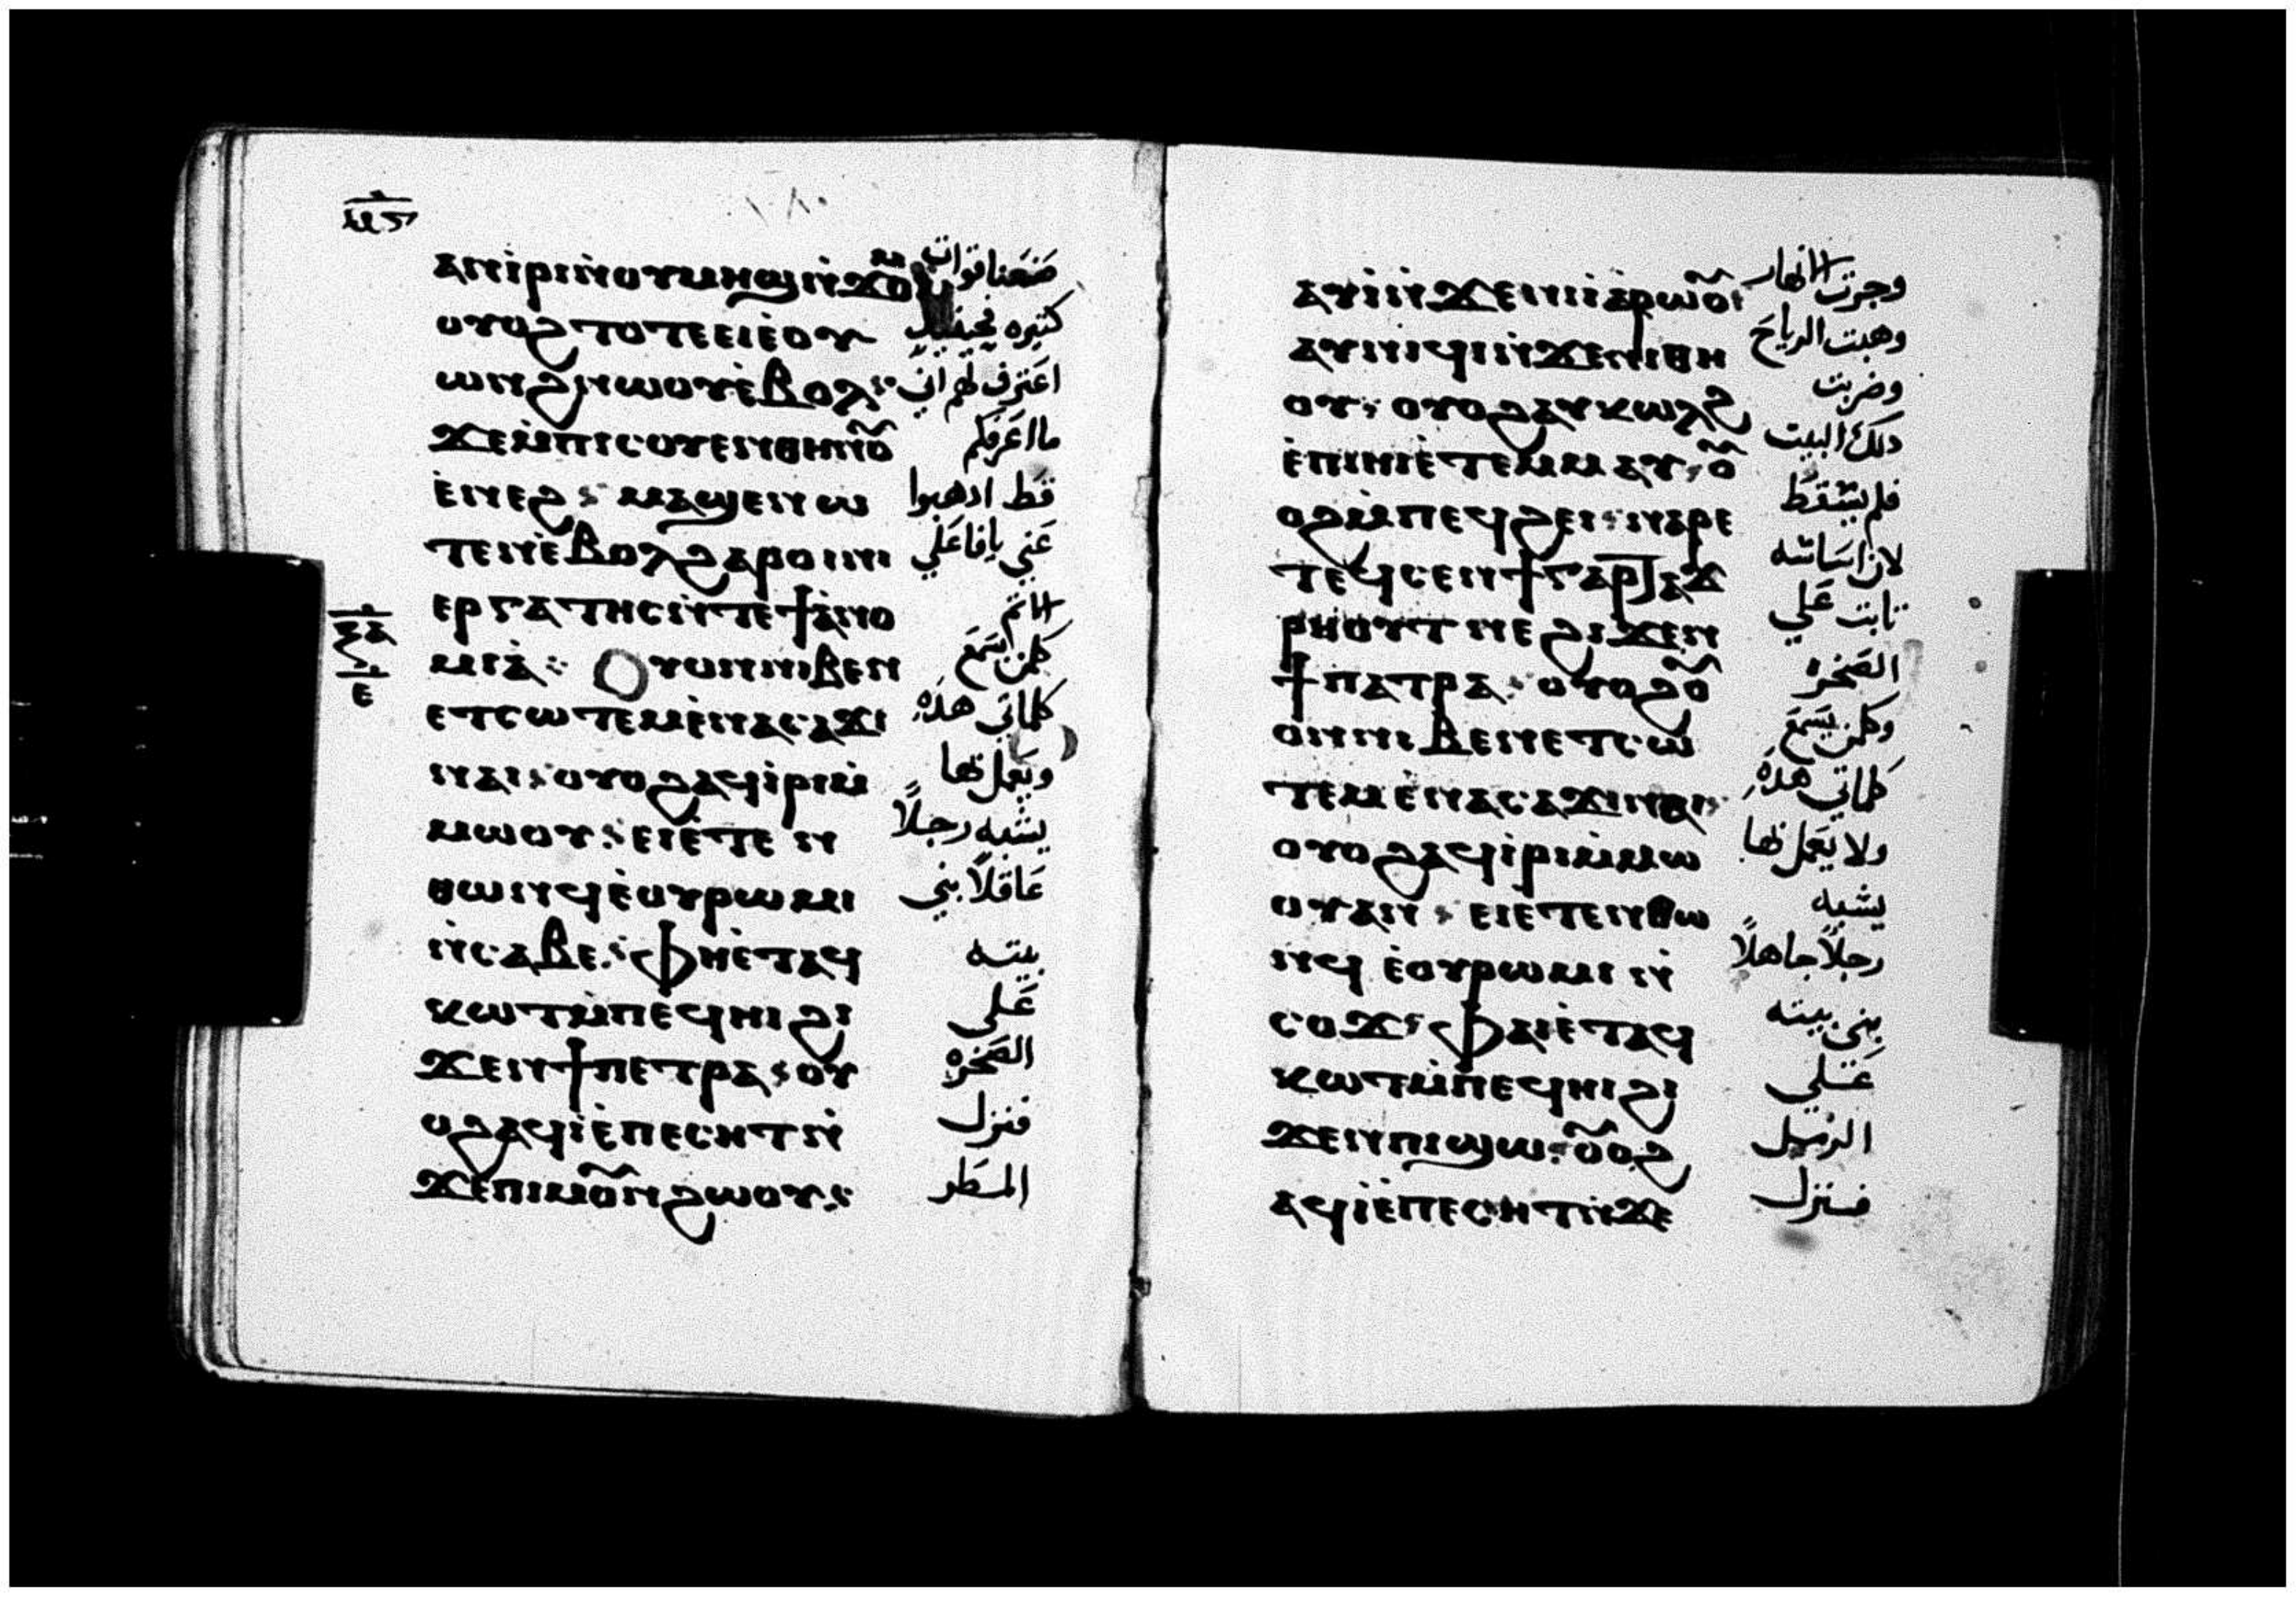 ⲁⲛⲓ̀ⲣⲓ ⲛ̀ⲟⲩⲙⲏϣ ⲛ̀ϫⲟⲙ صنعنا قوات
ⲟⲩⲟϩ ⲧⲟⲧⲉ ⲉⲓⲉ̀ⲟⲩ كتيره فحينيد
ⲱⲛϩ ⲛⲱⲟⲩ ⲉ̀ⲃⲟⲗ اعترف لهم اني
ϫⲉ ⲙ̀ⲡⲓⲥⲟⲩⲉⲛ ⲑⲏⲛⲟ̅ ما اعرفكم
ⲉ̀ⲛⲉϩ ⲙⲁϣⲉⲛⲱ قط ادهبوا
ⲧⲉⲛ ⲉ̀ⲃⲟⲗ ϩⲁⲣⲟⲓ ⲛⲓ عني يا فاعلي
ⲉⲣⲅⲁⲧⲏⲥ ⲛ̀ⲧⲉ ϯⲁ̀ⲛⲟ الاتم
ⲙⲓⲁ̀ ⲟⲩⲟⲛ ⲛⲓⲃⲉⲛ كلمن اسمع
ⲉⲧⲥⲱⲧⲉⲙ ⲉ̀ⲛⲁⲥⲁϫⲓ كلماتي هذه
ⲛⲁⲓ ⲟⲩⲟϩ ⲁϥⲓ̀ⲣⲓ ⲙ̀ ويعمل بها
ⲙⲱⲟⲩ ⲉⲓⲉ̀ⲧⲉⲛ يشبه رجلاً
ⲑⲱⲛϥ ⲉ̀ⲟⲩⲣⲱⲙⲓ عاقلاً بني
ⲛ̀ⲥⲁⲃⲉ ⲫⲏⲉ̀ⲧⲁϥ بيته
ⲕⲱⲧ ⲙ̀ⲡⲉϥⲏⲓ ϩⲓ على
ϫⲉⲛ ϯⲡⲉⲧⲣⲁ ⲟⲩ الصخره
ⲟϩ ⲁϥⲓ̀ ⲉ̀ⲡⲉⲥⲏⲧ ⲛ̀ فنزل
ϫⲉ ⲡⲓⲙⲟ̅ⲛϩⲱⲟⲩ المطر
ⲁⲩⲓ̀ ⲛ̀ϫⲉ ⲛⲓⲓⲁ̀ⲣⲱⲟ̅ⲓ وجرت الانهار
ⲁⲩⲛⲓϥⲓ ⲛ̀ϫⲉ ⲛⲓⲑⲏ وهبت الرياح
ⲟⲩ ⲟⲩⲟϩ ⲁⲩⲕⲱⲗϩ وضربت
ⲉ̀ⲡⲓⲏⲓ ⲉ̀ⲧⲉⲙⲙⲁⲩ ⲟ̅ دلك البيت
ⲟϩ ⲙ̀ⲡⲉϥϩⲉⲓ ⲛⲁⲣⲉ فلم يسقط
ⲧⲉϥⲥⲉⲛϯ ⲅⲁⲣ ⲧⲁϫ لان اساسه
ⲣⲏⲟⲩⲧ ⲛⲉ ϩⲓϫⲉⲛ تابت علي
ϯⲡⲁⲧⲣⲁ ⲟⲩⲟϩ ⲟ̅ الصخره
ⲟⲛ ⲛⲓⲃⲉⲛ ⲉⲧⲥⲱ وكلمن يسمع
ⲧⲉⲙ ⲉ̀ⲛⲁⲥⲁϫⲓ ⲛⲁⲓ كلماتي هذه
ⲟⲩⲟϩ ⲁϥⲓ̀ⲣⲓ ⲙ̀ⲙⲱ ولا يعمل بها
ⲟⲩ ⲁⲛ ⲉⲓⲉⲧⲉⲛⲑⲱ يشبه
ⲛϥ ⲉ̀ⲟⲩⲣⲱⲙⲓ ⲛ̀ رجلاً جاهلاً
ⲥⲟϫ ⲫⲁⲓ ⲉ̀ⲧⲁϥ بني بيته
ⲕⲱⲧ ⲙ̀ⲡⲉϥⲏⲓ ϩⲓ على
ϫⲉⲛ ⲡⲓϣⲱ ⲟ̅ⲟϩ الرمل
ⲁϥⲓ̀ ⲉ̀ⲡⲉⲥⲏⲧ ⲛ̀ϫⲉ فنزل